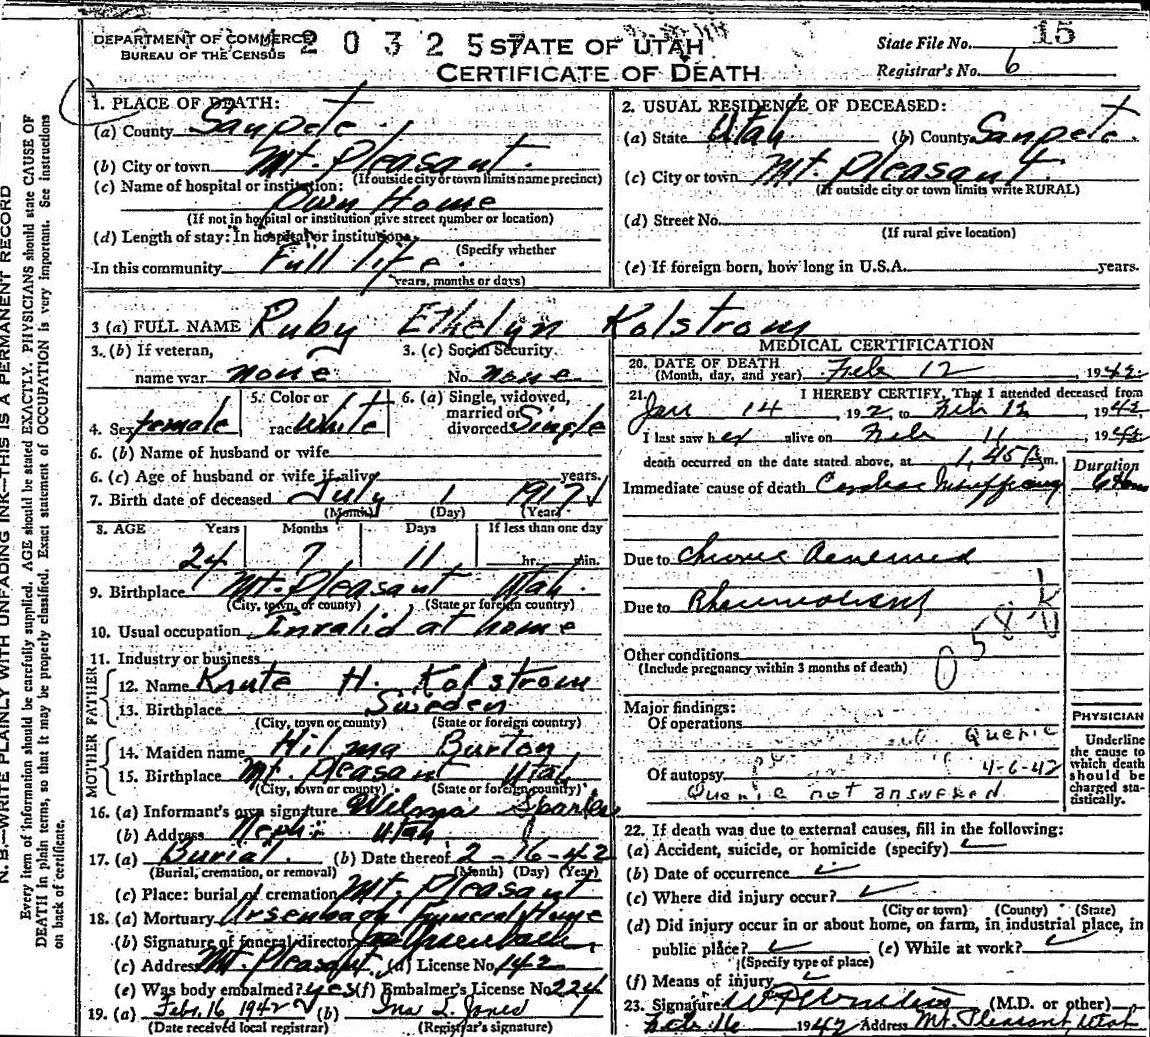 N. B.—WRITE PLAINLY WITH UNFADING INK—THIS IS A PERMANENT RECORD
Every item of information should be carefully supplied. AGE should be stated EXACTLY. PHYSICIANS should state CAUSE OF
DEATH in plain terms, so that it may be properly classified. Exact statement of OCCUPATION is very important. See instructions
on back of certificate.
DEPARTMENT OF COMMERCE
BUREAU OF THE CENSUS
20325
STATE OF UTAH
CERTIFICATE OF DEATH
State File No. 15
Registrar's No. 6
1. PLACE OF DEATH:
(a) County Sanpete
(b) City or town Mt. Pleasant.
(If outside city or town limits name precinct)
(c) Name of hospital or institution:
Own Home
(If not in hospital or institution give street number or location)
(d) Length of stay: In hospital or institution
(Specify whether
In this community Full life
years, months or days)
2. USUAL RESIDENCE OF DECEASED:
(a) State Utah (b) County Sanpete.
(c) City or town Mt. Pleasant
(If outside city or town limits write RURAL)
(d) Street No.
(If rural give location)
(e) If foreign born, how long in U.S.A. years.
3 (a) FULL NAME Ruby Ethelyn Kolstrom
3. (b) If veteran, 3. (c) Social Security
name war none No. none
4. Sex female 5. Color or race White 6. (a) Single, widowed, married or divorced Single
6. (b) Name of husband or wife
6. (c) Age of husband or wife if alive years.
7. Birth date of deceased July 1 1917
(Month) (Day) (Year)
8. AGE Years Months Days If less than one day
24 7 11 hr. min.
9. Birthplace Mt. Pleasant Utah.
(City, town, or county) (State or foreign country)
10. Usual occupation Invalid at home
11. Industry or business
FATHER
12. Name Knute H. Kolstrom
13. Birthplace Sweden
(City, town or county) (State or foreign country)
MOTHER
14. Maiden name Hilma Burton
15. Birthplace Mt. Pleasant Utah
(City, town or county) (State or foreign country)
16. (a) Informant's own signature Wilma
(b) Address Nephi Utah
17. (a) Burial. (b) Date thereof 2-16-42
(Burial, cremation, or removal) (Month) (Day) (Year)
(c) Place: burial of cremation Mt. Pleasant
18. (a) Mortuary Ursenbach Funeral Home
(b) Signature of funeral director Ursenbach
(c) Address Mt. Pleasant (d) License No. 142
(e) Was body embalmed? yes (f) Embalmer's License No. 224
19. (a) Feb. 16 1942 (b) Ina L. Jones
(Date received local registrar) (Registrar's signature)
MEDICAL CERTIFICATION
20. DATE OF DEATH
(Month, day, and year) Feb 12 1942
21. I HEREBY CERTIFY, That I attended deceased from
Jan 14 1942 to Feb 12, 1942
I last saw her alive on Feb 11, 1942
death occurred on the date stated above, at 1,45 m.
Duration
Immediate cause of death Cardiac
Due to Chronic
Due to Rheumatism
Other conditions
(Include pregnancy within 3 months of death)
058
Major findings:
Of operations
Querie
Of autopsy 4-6-42
Querie not answered
PHYSICIAN
Underline
the cause to
which death
should be
charged sta-
tistically.
22. If death was due to external causes, fill in the following:
(a) Accident, suicide, or homicide (specify)
(b) Date of occurrence
(c) Where did injury occur?
(City or town) (County) (State)
(d) Did injury occur in or about home, on farm, in industrial place, in
public place? (e) While at work?
(Specify type of place)
(f) Means of injury
23. Signature (M.D. or other)
Feb 16 1942 Address Mt. Pleasant, Utah